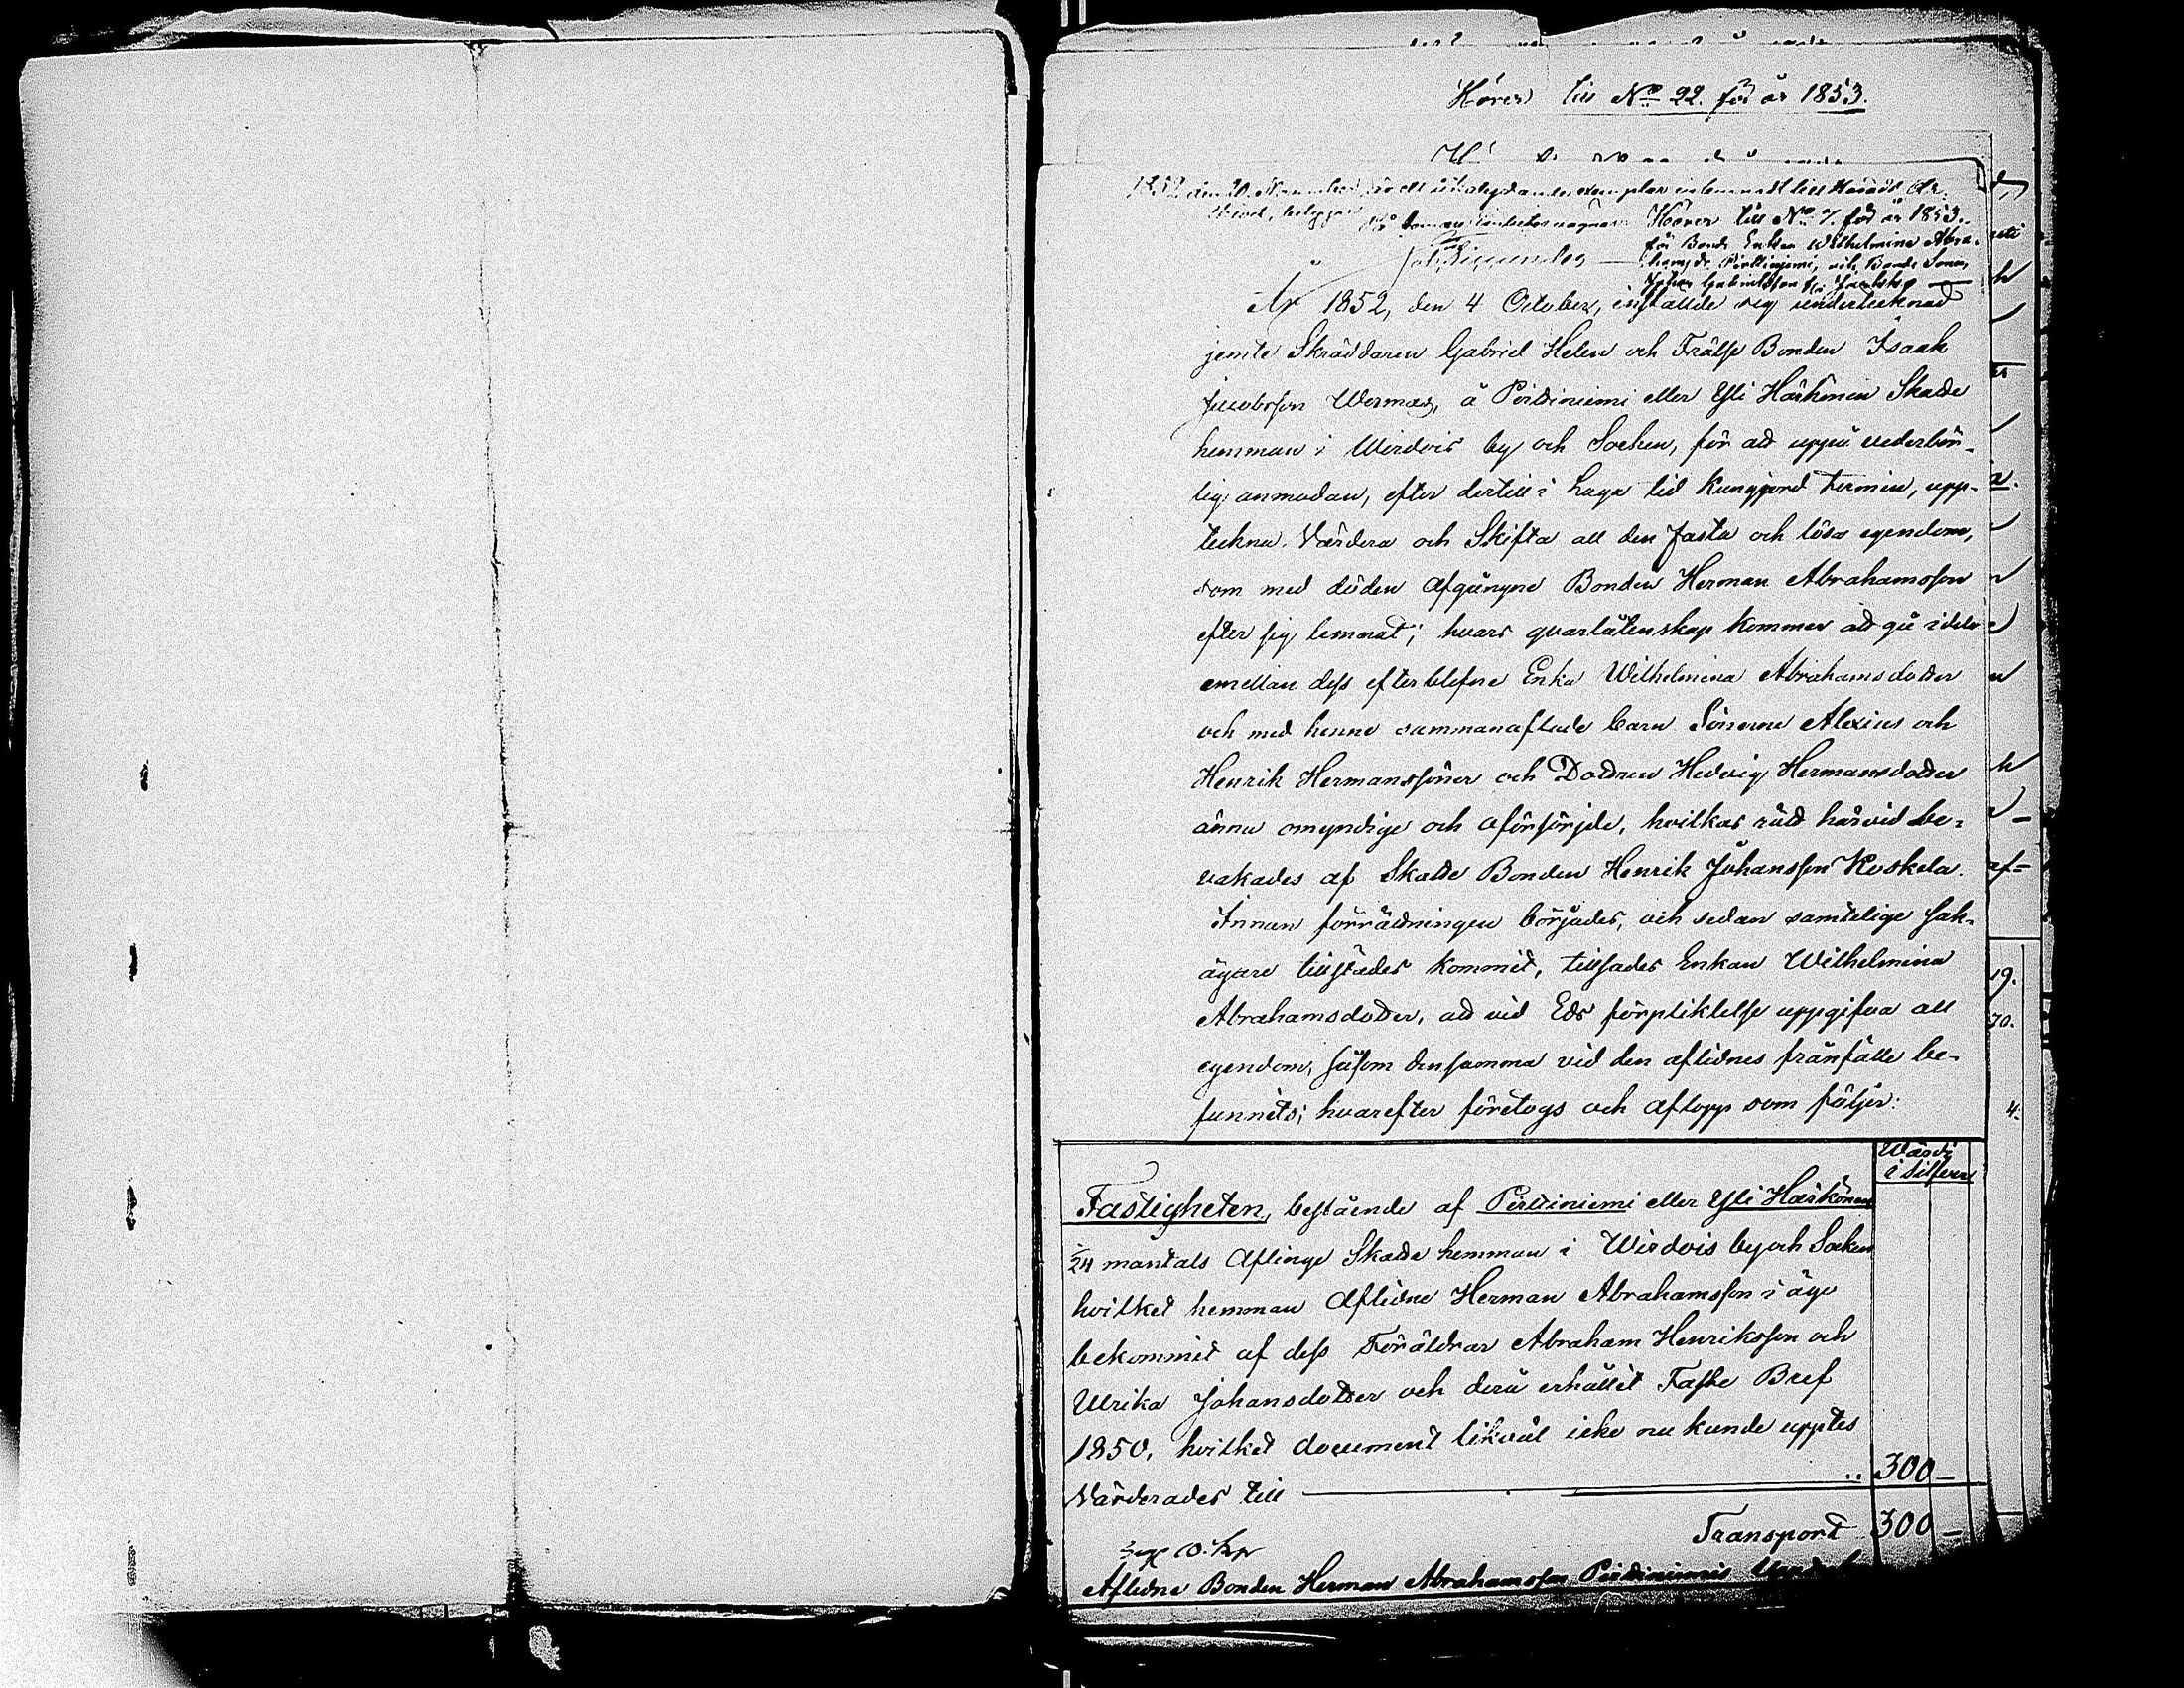 Hörer till No 22. för år 1853.
1852 den 20 November är ett lika lydande exemplar inlemnadt till Härads Ar-
Hörer till No 7. för år 1853.
för Bonde Enkan Wilhelmina Abra-
hamsdr Pirttiniemi, och Bonde Sonen
Johan Gabrielsson
År 1852, den 4 October, inställde sig undertecknad
jemte Skräddaren Gabriel Helen och Frälse Bonden Isaak
Jacobsson Wermas, å Pirttiniemi eller Yli Härkönen Skatte
hemman i Wirdois by och Socken, för att uppå vederbör-
lig anmodan, efter dertill i Laga tid kungjord termin, upp-
teckna, Värdera och Skifta all den fasta och lösa egendom,
som med döden afgångne Bonden Herman Abrahamsson
efter sig lemnat; hvars qvarlåtenskap kommer att gå i delo
emellan dess efterblefne Enka Wilhelmina Abrahamsdotter
och med henne sammanaflade barn Sönerne Alexius och
Henrik Hermanssöner och Dottren Hedvig Hermansdotter
ännu omyndige och oförsörjde, hvilkas rätt härvid be-
vakades af Skatte Bonden Henrik Johansson Koskela.
Innan förrättningen börjades, och sedan samtelige sak-
ägare tillstädes kommit, tillsades Enkan Wilhelmina
Abrahamsdotter, att vid Eds förpliktelse uppgifva all
egendom, såsom densamma vid den aflidnes frånfälle be-
funnits; hvarefter företogs och aflopp som följer:
Wärde
i silfver
Fastigheten, bestående af Pirttiniemi eller Yli Härkönen
1/24 mantals Aflinge Skatte hemman i Wirdois by och Socken
hvilket hemman Aflidne Herman Abrahamsson i ägo
bekommit af dess Föräldrar Abraham Henriksson och
Ulrika Johansdotter och derå erhållit Faste Bref
1850, hvilket document likväl icke nu kunde upptes
Värderades till 300 –
Transport 300 –
Aflidne Bonden Herman Abrahamsson Pirttiniemis